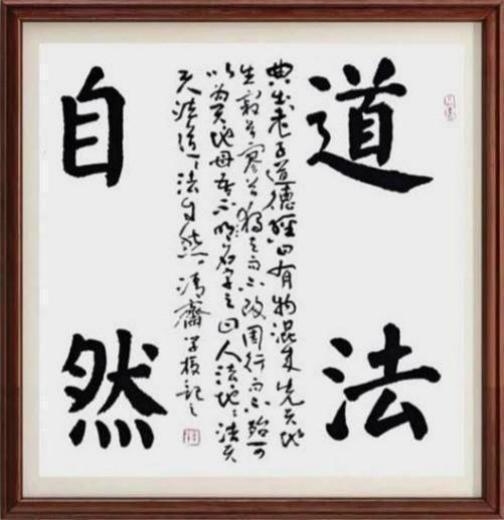 道法
典出老子道德經曰有物混成先天地
生寂兮寥兮獨立而不改周行而不殆可
以為天地母吾不名字之曰人法地〻法天
天法道〻法自然齋記之
自然